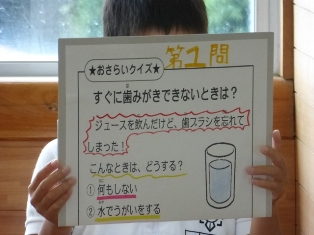 第1問
★おさらいクイズ★
すぐに歯みがきできないときは?
ジュースを飲んだけど、歯ブラシを忘れて
しまった!
こんなときは、どうする?
① 何もしない
② 水でうがいをする